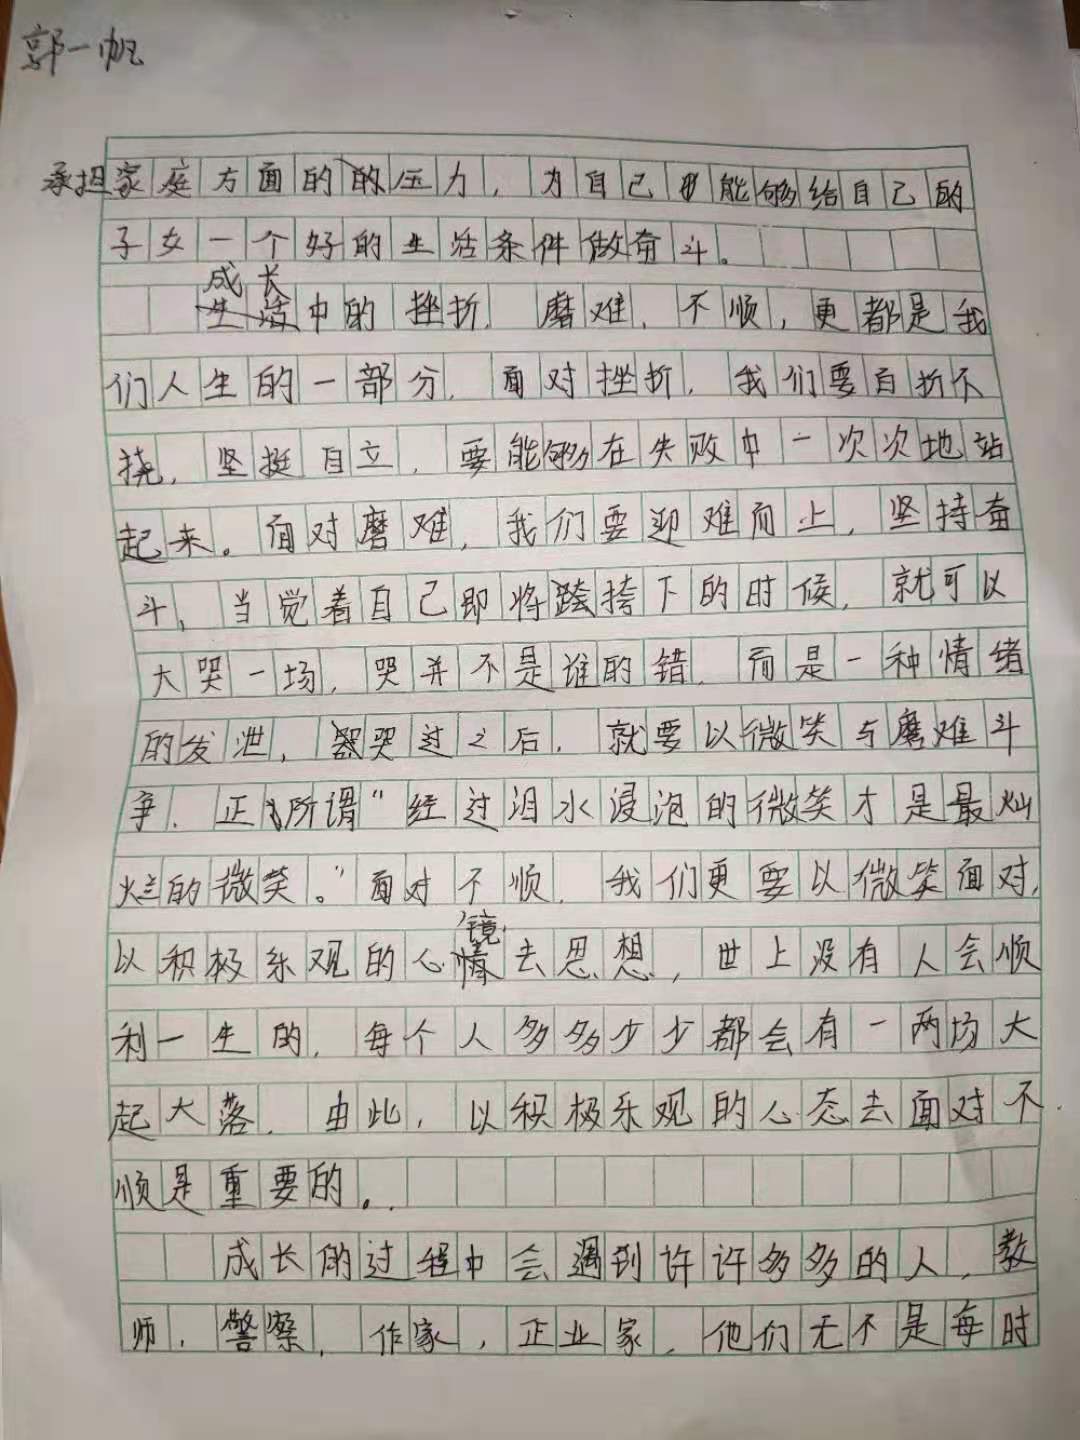 郭一帆
承担家庭方面的的压力，为自己能够给自己的
子女一个好的生活条件做奋斗。
成长
生活中的挫折、磨难、不顺，更都是我
们人生的一部分，面对挫折，我们要百折不
挠，坚挺自立，要能够在失败中一次次地站
起来。面对磨难，我们要迎难而上，坚持奋
斗，当觉着自己即将跨挎下的时候，就可以
大哭一场，哭并不是谁的错，而是一种情绪
的发泄，哭过之后，就要以微笑与磨难斗
争，正所谓“经过泪水浸泡的微笑才是最灿
烂的微笑。”面对不顺，我们更要以微笑面对，
镜
以积极乐观的心情去思想，世上没有人会顺
利一生的，每个人多多少少都会有一两场大
起大落，由此，以积极乐观的心态去面对不
顺是重要的。
成长的过程中会遇到许许多多的人，教
师，警察，作家，正业家，他们无不是每时